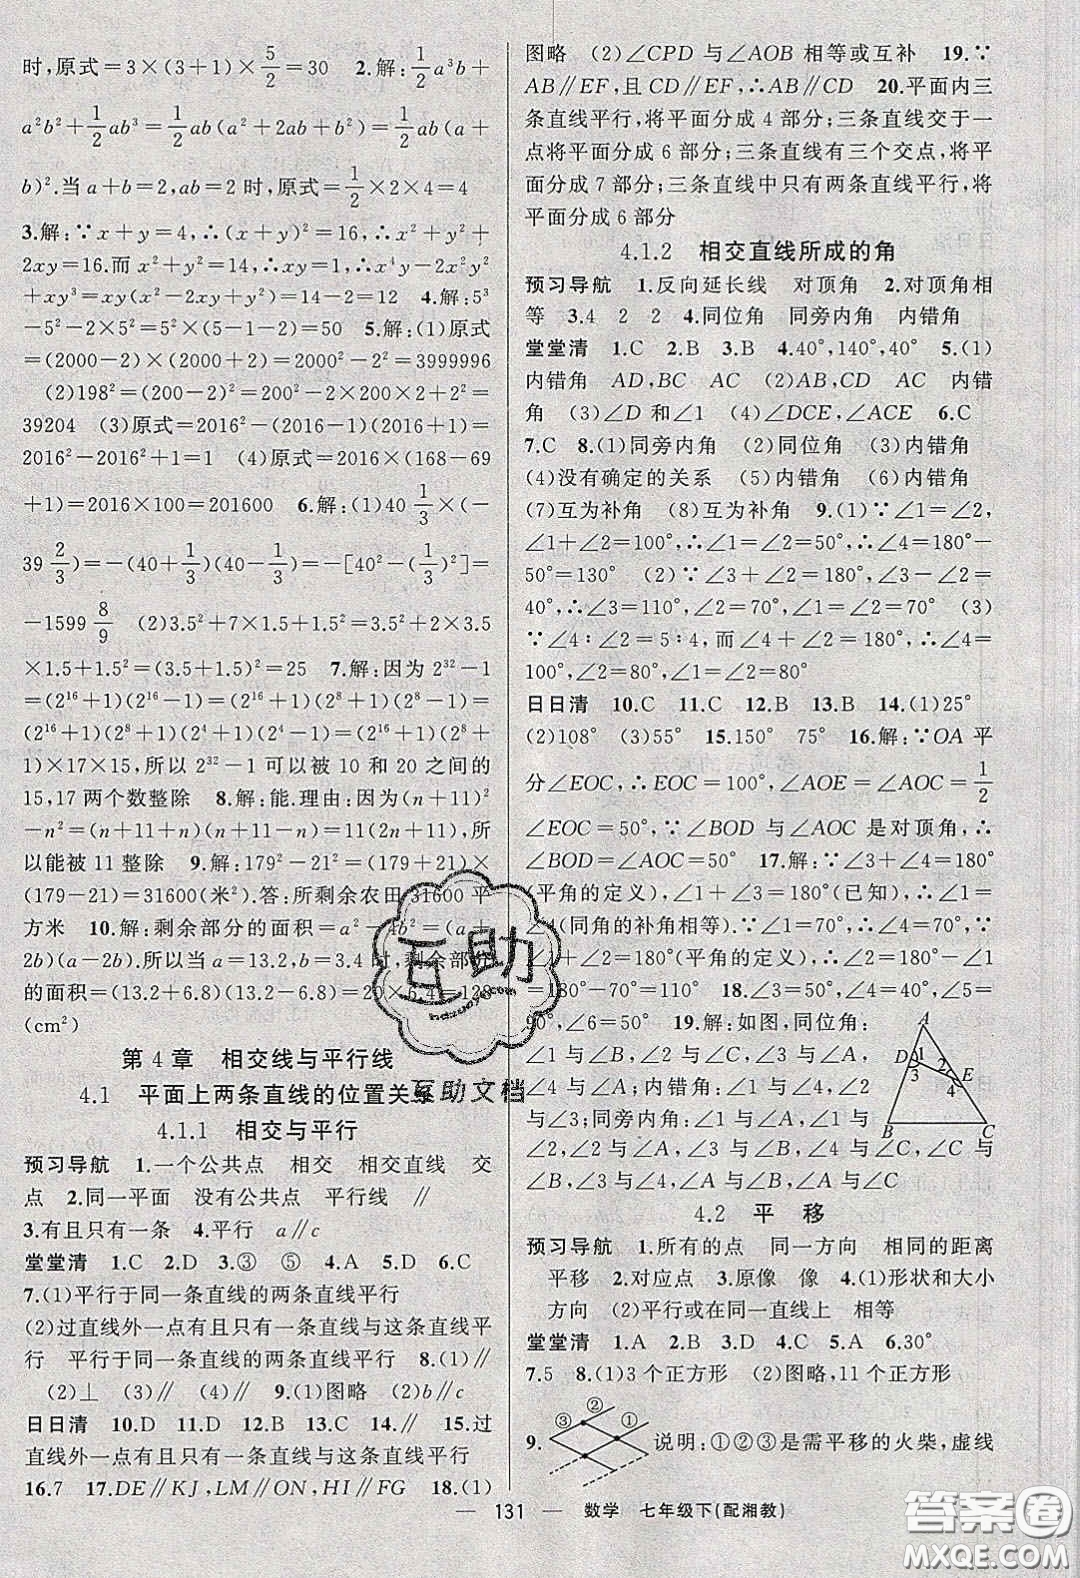 时,原式=3×(3+1)×5/2=30 2.解:1/2a³b+
a²b²+1/2ab³=1/2ab(a²+2ab+b²)=1/2ab(a+
b)².当a+b=2,ab=2时,原式=1/2×2×4=4
3.解:∵x+y=4,∴(x+y)²=16,∴x²+y²+
2xy=16.而x²+y²=14,∴xy=1,∴x³y-2x²y²
+xy³=xy(x²-2xy+y²)=14-2=12 4.解:5³
-5²-2×5²=5²×(5-1-2)=50 5.解:(1)原式
=(2000-2)×(2000+2)=2000²-2²=3999996
(2)198²=(200-2)²=200²-2×200×2+2²=
39204 (3)原式=2016²-(2016-1)(2016+1)=
2016²-2016²+1=1 (4)原式=2016×(168-69
+1)=2016×100=201600 6.解:(1)40 1/3×(-
39 2/3)=-(40+1/3)(40-1/3)=-[40²-(1/3)²]=
-1599 8/9 (2)3.5²+7×1.5+1.5²=3.5²+2×3.5
×1.5+1.5²=(3.5+1.5)²=25 7.解:因为2³²-1
=(2¹⁶+1)(2¹⁶-1)=(2¹⁶+1)(2⁸+1)(2⁸-1)=
(2¹⁶+1)(2⁸+1)(2⁴+1)(2⁴-1)=(2¹⁶+1)(2⁸
+1)×17×15,所以2³²-1可以被10和20之间的
15,17两个数整除 8.解:能.理由:因为(n+11)²
-n²=(n+11+n)(n+11-n)=11(2n+11),所
以能被11整除 9.解:179²-21²=(179+21)×
(179-21)=31600(米²).答:所剩余农田31600平
方米 10.解:剩余部分的面积=a²-4b²=(a+
2b)(a-2b).所以当a=13.2,b=3.4时,剩余部分
的面积=(13.2+6.8)(13.2-6.8)=20×6.4=128
(cm²)
第4章 相交线与平行线
4.1 平面上两条直线的位置关系
4.1.1 相交与平行
预习导航 1.一个公共点 相交 相交直线 交
点 2.同一平面 没有公共点 平行线 ∥
3.有且只有一条 4.平行 a∥c
堂堂清 1.C 2.D 3.③ ⑤ 4.A 5.D 6.C
7.(1)平行于同一条直线的两条直线平行
(2)过直线外一点有且只有一条直线与这条直线平
行 平行于同一条直线的两条直线平行 8.(1)∥
(2)⊥ (3)∥ (4)∥ 9.(1)图略 (2)b∥c
日日清 10.D 11.D 12.B 13.C 14.∥ 15.过
直线外一点有且只有一条直线与这条直线平行
16.7 17.DE∥KJ,LM∥ON,HI∥FG 18.(1)
图略 (2)∠CPD与∠AOB相等或互补 19.∵
AB∥EF,且CD∥EF,∴AB∥CD 20.平面内三
条直线平行,将平面分成4部分;三条直线交于一
点将平面分成6部分;三条直线有三个交点,将平
面分成7部分;三条直线中只有两条直线平行,将
平面分成6部分
4.1.2 相交直线所成的角
预习导航 1.反向延长线 对顶角 2.对顶角相
等 3.4 2 2 4.同位角 同旁内角 内错角
堂堂清 1.C 2.B 3.B 4.40°,140°,40° 5.(1)
内错角 AD,BC AC (2)AB,CD AC 内错
角 (3)∠D和∠1 (4)∠DCE,∠ACE 6.C
7.C 8.(1)同旁内角 (2)同位角 (3)内错角
(4)没有确定的关系 (5)内错角 (6)内错角
(7)互为补角 (8)互为补角 9.(1)∵∠1=∠2,
∠1+∠2=100°,∴∠1=∠2=50°,∴∠4=180°-
50°=130° (2)∵∠3+∠2=180°,∠3-∠2=
40°,∴∠3=110°,∠2=70°,∠1=∠2=70° (3)
∵∠4∶∠2=5∶4,而∠4+∠2=180°,∴∠4=
100°,∠2=80°,∠1=∠2=80°
日日清 10.C 11.C 12.B 13.B 14.(1)25°
(2)108° (3)55° 15.150° 75° 16.解:∵OA平
分∠EOC,∠EOC=100°,∴∠AOE=∠AOC=1/2
∠EOC=50°,∵∠BOD与∠AOC是对顶角,∴
∠BOD=∠AOC=50° 17.解:∵∠3+∠4=180°
(平角的定义),∠1+∠3=180°(已知),∴∠1=
∠4(同角的补角相等).∵∠1=70°,∴∠4=70°.
∵∠1+∠2=180°(平角的定义),∴∠2=180°-∠1
=180°-70°=110° 18.∠3=40°,∠4=50°,∠5=
90°,∠6=50° 19.解:如图,同位角:
∠1与∠B,∠2与∠C,∠1与∠C,
∠4与∠B;内错角:∠2与∠3,∠1
与∠4;同旁内角:∠1与∠2,∠1与
∠A,∠2与∠A,∠B与∠C,∠C与
∠A,∠B与∠A,∠3与∠4,∠B与∠3,∠C与∠4
A
D
E
B
C
1
2
3
4
4.2 平 移
预习导航 1.所有的点 同一方向 相同的距离
平移 2.对应点 3.原像 像 4.(1)形状和大小
方向 (2)平行或在同一直线上 相等
堂堂清 1.A 2.B 3.D 4.C 5.A 6.30°
7.5 8.(1)3个正方形 (2)图略,11个正方形
③ ② ①
9. 说明:①②③是需平移的火柴,虚线
互助
互助文档
— 131 — 数学 七年级下(配湘教)
答案圈
MXQE.COM